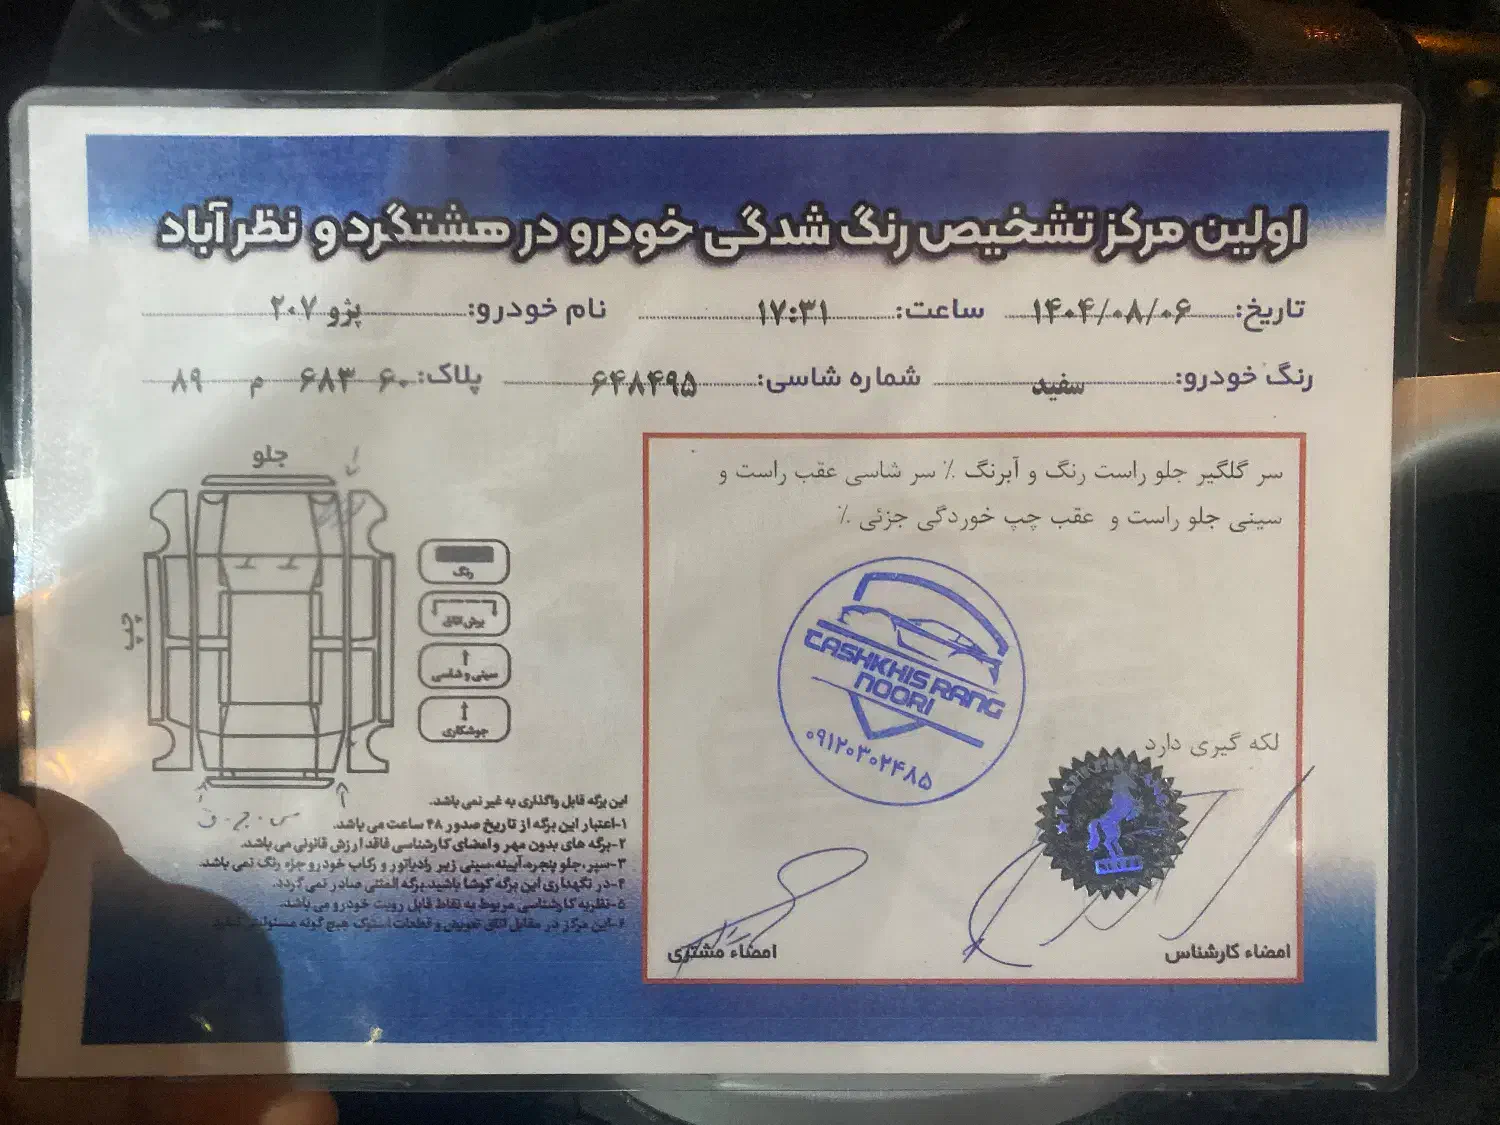 اولین مرکز تشخیص رنگ شدگی خودرو در هشتگرد و نظرآباد
تاریخ: ۱۴۰۴/۰۸/۰۶ ساعت: ۱۷:۳۱ نام خودرو: پژو ۲۰۷
رنگ خودرو: سفید شماره شاسی: ۶۴۸۴۹۵ پلاک: ۶۰ ۶۸۳ م ۸۹
سر گلگیر جلو راست رنگ و آبرنگ ٪ سر شاسی عقب راست و
سینی جلو راست و عقب چپ خوردگی جزئی ٪
TASHKHIS RANG
NOORI
۰۹۱۲۰۳۰۲۴۸۵
لکه گیری دارد
امضاء کارشناس
امضاء مشتری
جلو
چپ
رنگ
برش اتاق
سینی و شاسی
جوشکاری
این برگه قابل واگذاری به غیر نمی باشد.
۱-اعتبار این برگه از تاریخ صدور ۴۸ ساعت می باشد.
۲-برگه های بدون مهر و امضای کارشناسی فاقد ارزش قانونی می باشد.
۳-سپر،جلو پنجره،آیینه،سینی زیر رادیاتور و رکاب خودرو جزء رنگ نمی باشد.
۴-در نگهداری این برگه کوشا باشید.برگه المثنی صادر نمی گردد.
۵-نظریه کارشناسی مربوط به نقاط قابل رویت خودرو می باشد.
۶-این مرکز در مقابل اتاق تعویض و قطعات استوک هیچ گونه مسئولیتی